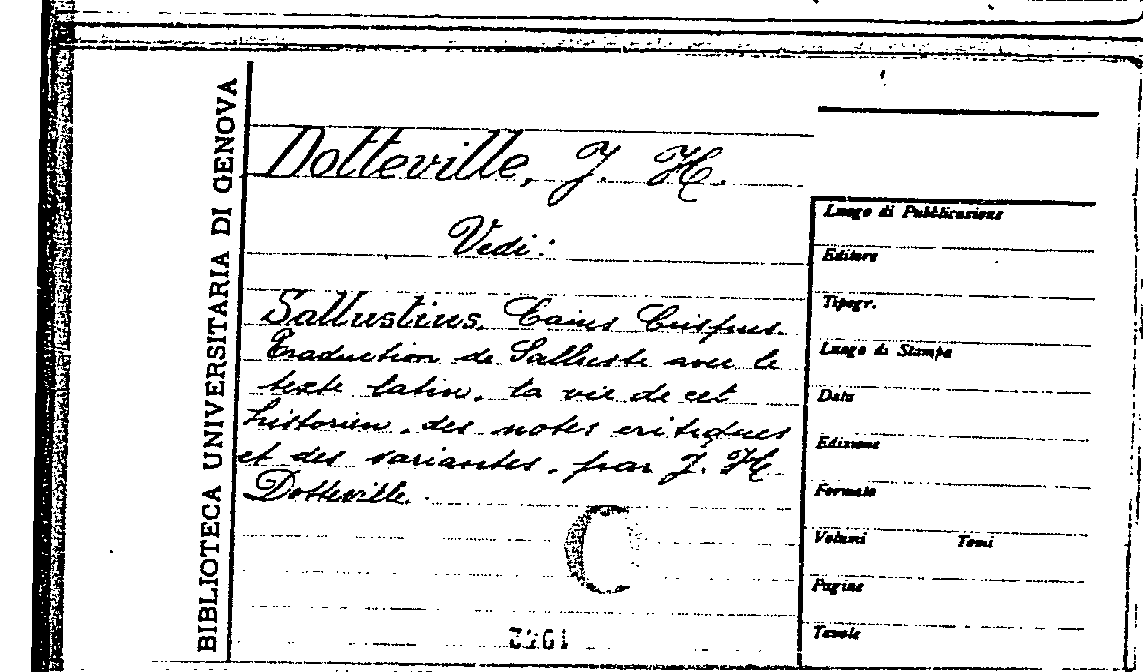 BIBLIOTECA UNIVERSITARIA DI GENOVA
Dotteville, J. H.
Vedi:
Sallustius, Caius Crispus
Traduction de Salluste avec le
texte latin, la vie de cet
historien, des notes critiques
et des variantes, par J. H.
Dotteville.
Luogo di Pubblicazione
Editore
Tipogr.
Luogo di Stampa
Data
Edizione
Formato
Volumi Tomi
Pagine
Tavole